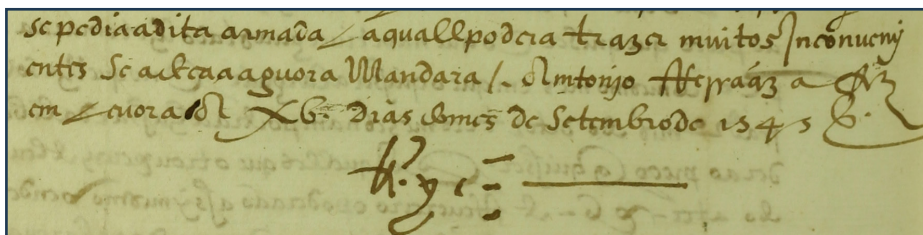 se pedia a dita armada / a quall podera trazer muitos Inconveny
entes Se a elRaa aguora Mandara /. Amtonjo fferraãz a fez
em / evora A XB dias domes de Setembro de 1545
R. y e : —